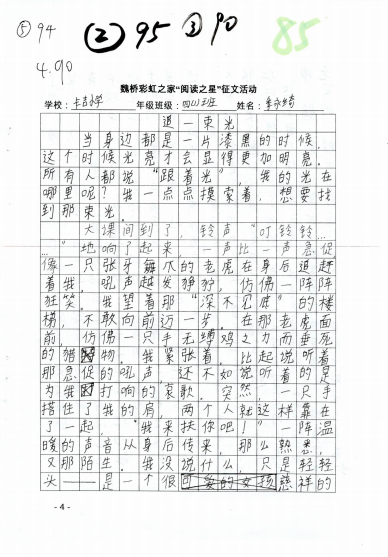 ⑤94 ②95 ③90 85
4.90
魏桥彩虹之家“阅读之星”征文活动
学校：小学 年级班级：四(4)班 姓名：
追一束光
当身边都是一片漆黑的时候，
这个时候光亮才会显得更加明亮。
所有人都说“跟着光”，我的光在
哪里呢？我一点点摸索着，想要找
到那束光。
大课间到了，铃声“叮铃铃…
…”地响了起来，一声比一声急促
像一只张牙舞爪的老虎在身后追赶
着我，吼声越发狰狞，仿佛一阵阵
狂笑。我望着那“深不见底”的楼
梯，不敢向前迈一步。在那老虎面
前，仿佛一只手无缚鸡之力而垂死
的猎物。我紧张着，比起说听着
那急促的吼声，还不如说听着的是
为我打响的哀歌。突然，一只手
搭住了我的肩，两个人就这样靠在
了一起，“我来扶你吧！”一阵温
暖的声音从身后传来，那么熟悉，
又那陌生。我没说什么，只是轻轻
头——是一个很可爱的女孩慈祥的
- 4 -